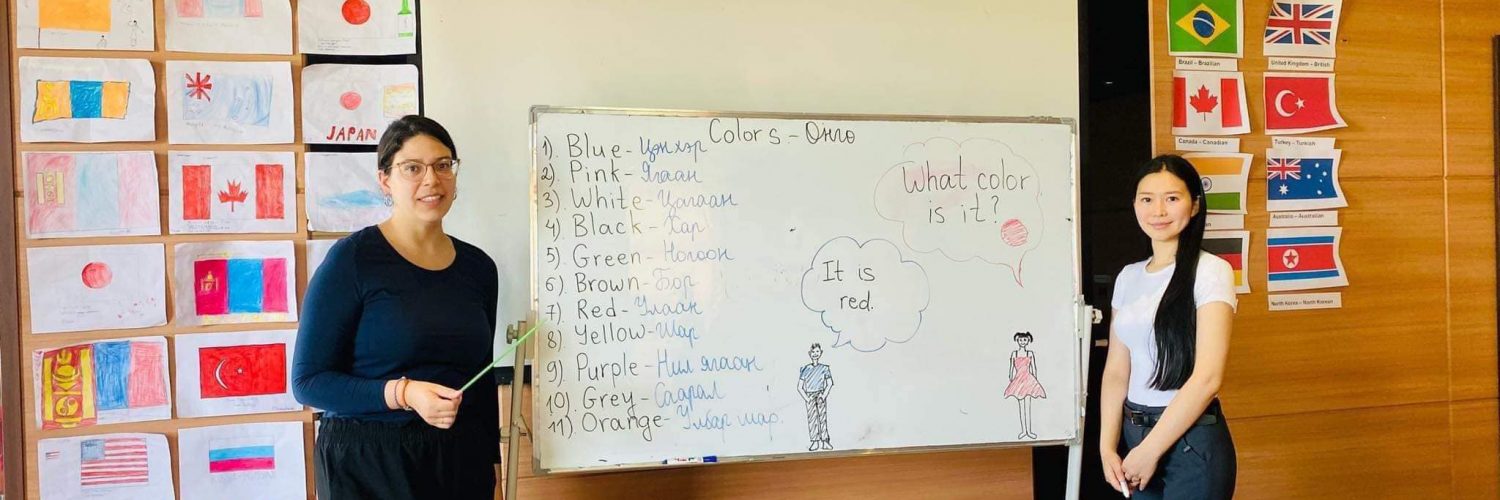 JAPAN
Colors - Өнгө
1). Blue - Цэнхэр
2). Pink - Ягаан
3). White - Цагаан
4). Black - Хар
5). Green - Ногоон
6). Brown - Бор
7). Red - Улаан
8). Yellow - Шар
9). Purple - Нил ягаан
10). Grey - Саарал
11). Orange - Улбар шар.
What color
is it?
It is
red.
Brazil – Brazilian
United Kingdom – British
Canada – Canadian
Turkey – Turkish
Australia – Australian
North Korea – North Korean